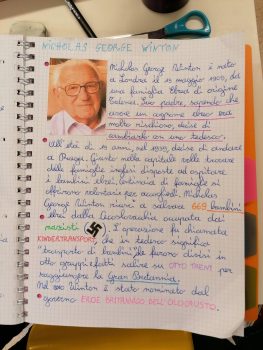 NICHOLAS GEORGE WINTON
Nicholas George Winton è nato
a Londra il 19 maggio 1909, da
una famiglia Ebrea di origine
Tedesca. Suo padre, sapendo che
avere un cognome ebreo era
molto rischioso, decise di
cambiarlo con uno tedesco.
All'età di 29 anni, nel 1939, decise di andare
a Praga. Giunto nella capitale ceca trovare
delle famiglie inglesi disposte ad ospitare
i bambini Ebrei. Centinaia di famiglie si
offrirono volontarie per accoglierli. Nicholas
George Winton riuscì a salvare 669 bambini
ebrei dalla Cecoslovacchia occupata dai
nazisti ( ). L'operazione fu chiamata
KINDERTRANSPORT, che in tedesco significa
"trasporto di bambini". Ne furono divisi in
otto gruppi e fatti salire su OTTO TRENI per
raggiungere la Gran Bretagna.
Nel Winton è stato nominato dal
governo EROE BRITANNICO DELL'OLOCAUSTO.